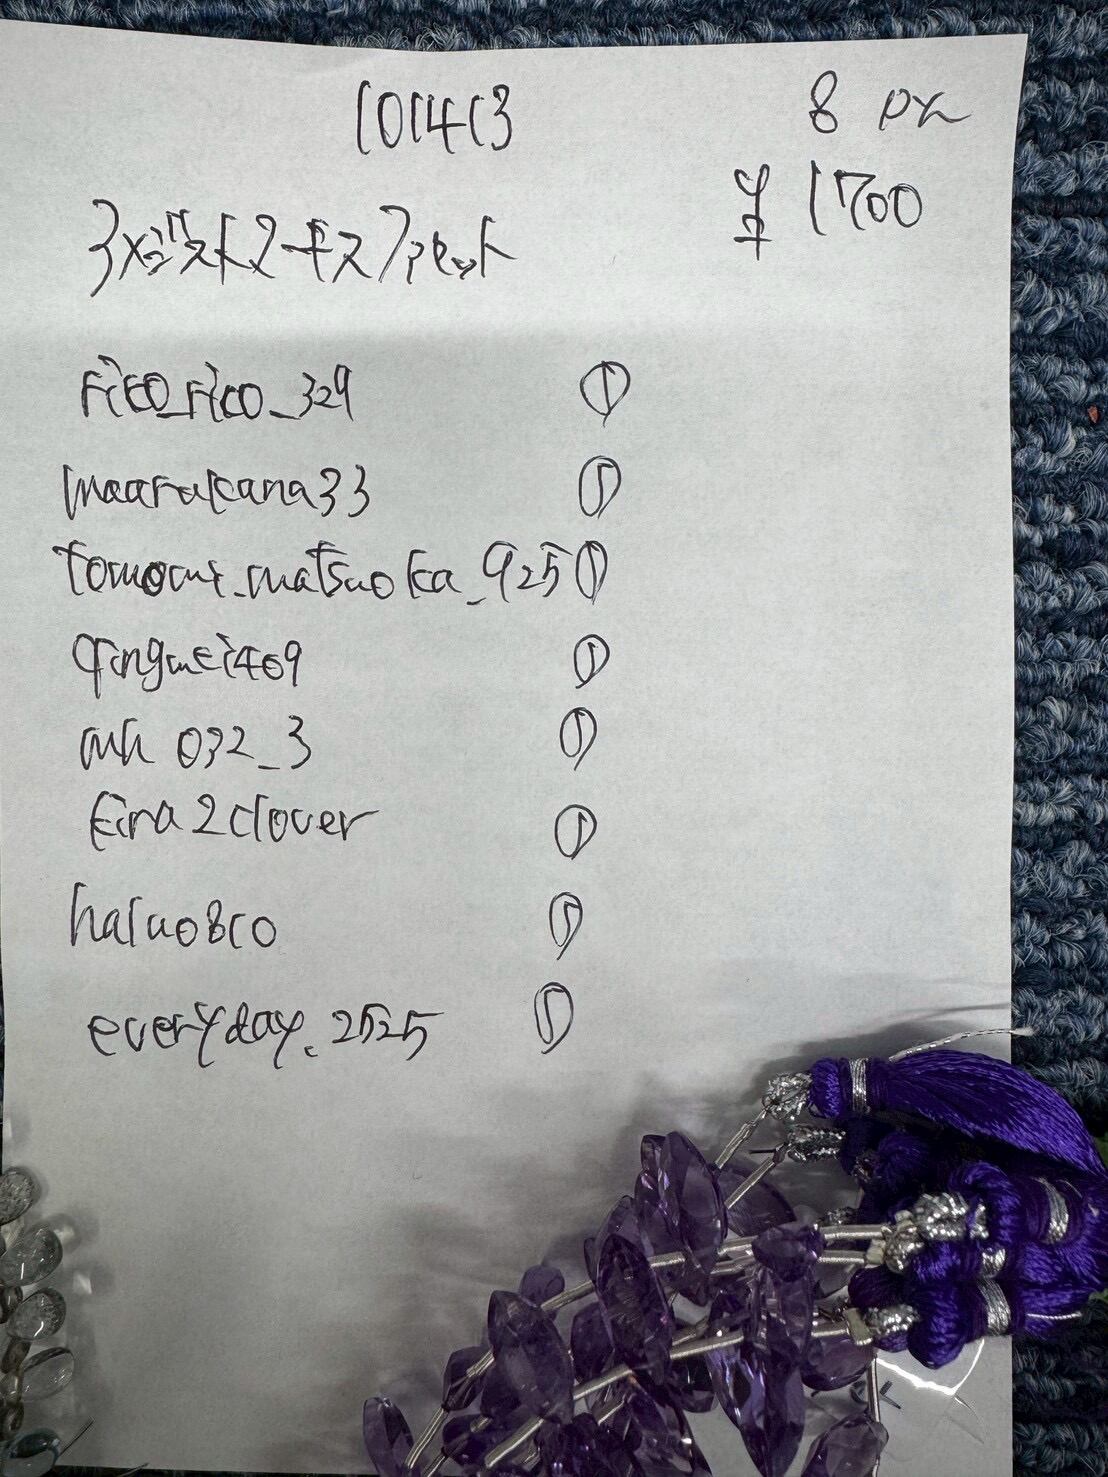 101413
8 px
¥1700
アメジストマーキスファセット
rico_rico_329 ①
maarukana33 ①
tomomi_matsuoka_925 ①
qingmei409 ①
032_3 ①
kira2clover ①
haluo810 ①
everyday.2525 ①